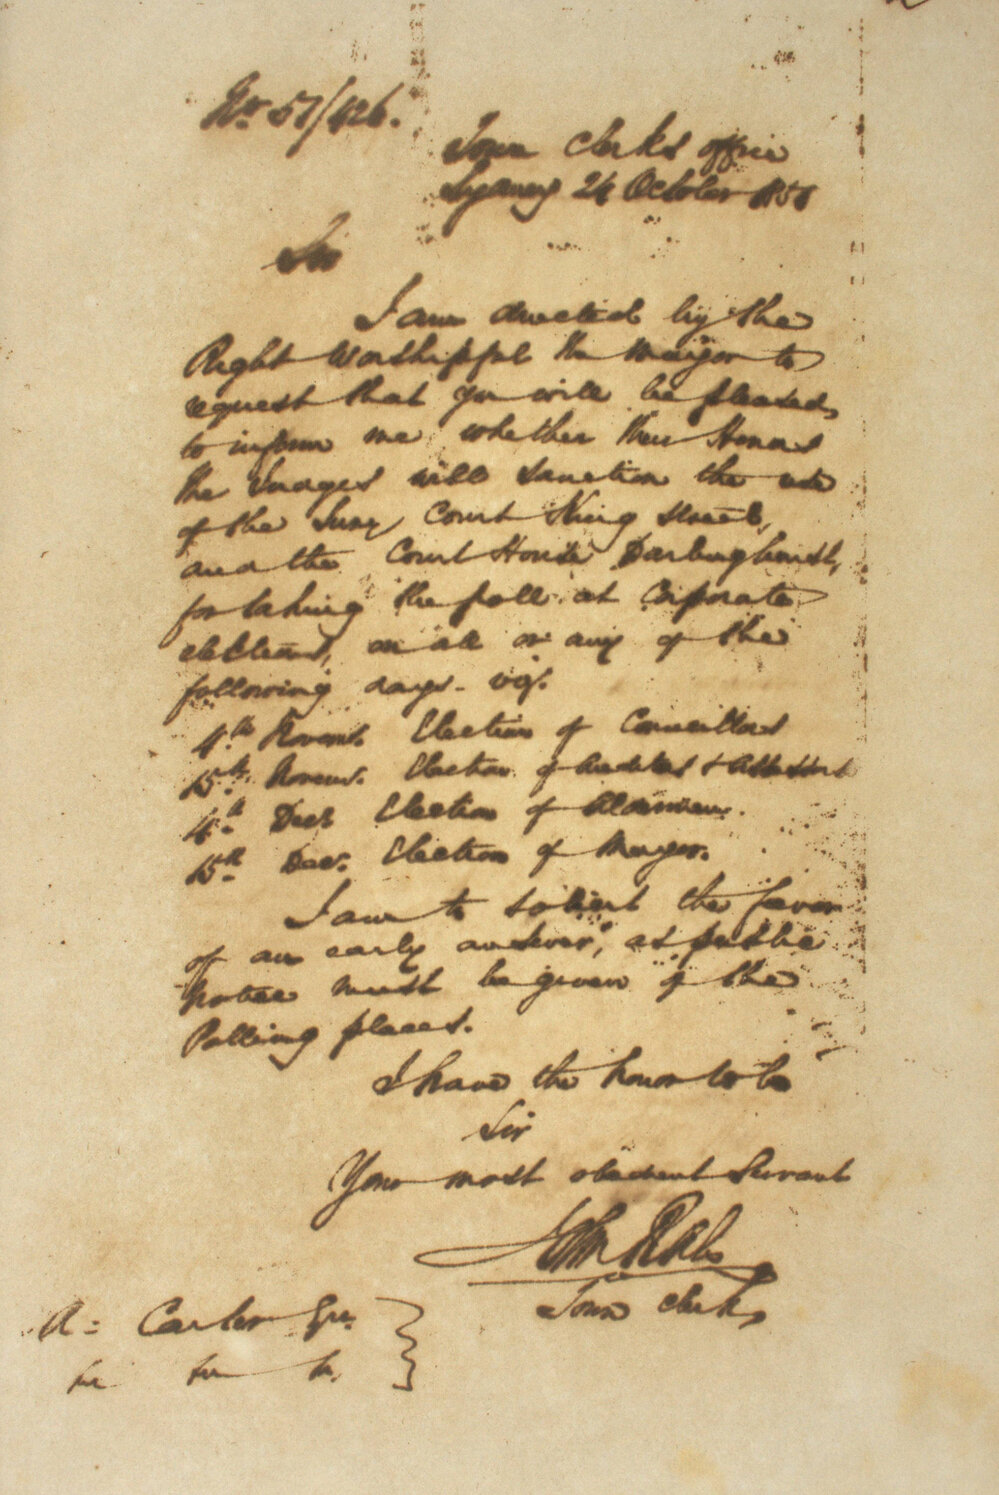 No. 51/426.
Town Clerks office
Sydney 24 October 1851
Sir
I am directed by the
Right Worshipful the Mayor to
request that you will be pleased,
to inform me whether their Honors
the Judges will sanction the use
of the Jury Court King street,
and the Court House Darlinghurst,
for taking the poll at Corporate
elections, on all or any of the
following days. viz.
4th Novemr. Election of Councillors
15th Novemr. Election of Auditors & Assessors
4th Decr Election of Aldermen.
15th Decr. Election of Mayor.
I am to solicit the favor
of an early answer, as public
notice must be given of the
Polling places.
I have the honor to be
Sir
Your most obedient Servant
John
Town Clerk
A: Carter Esqre.